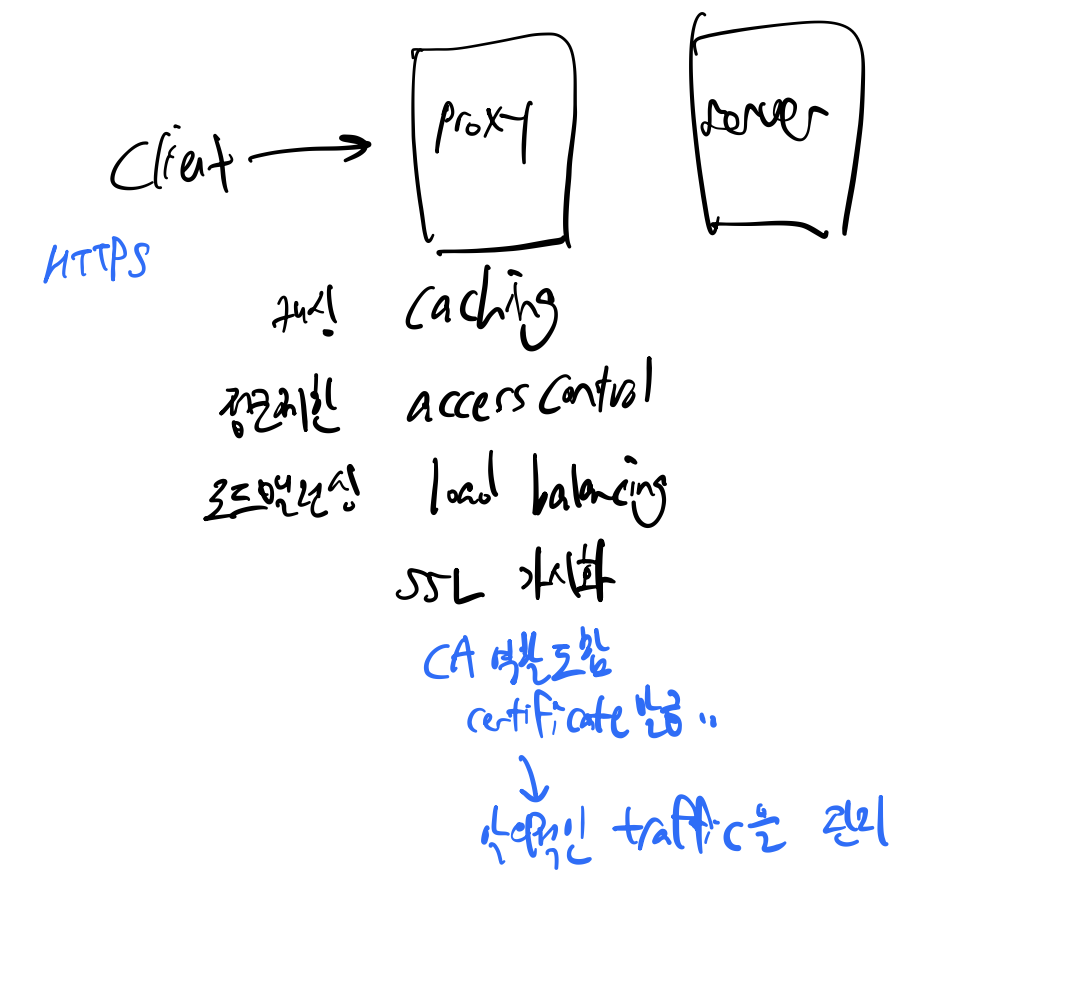 Client → proxy server
HTTPS
캐싱 caching
접근제한 access control
로드밸런싱 load balancing
SSL 가시화
CA 역할도 함
certificate 발급 ..
↓
악의적인 traffic을 관리